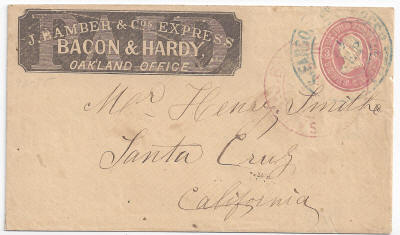 J. BAMBER & Cos. EXPRESS
PAID
BACON & HARDY,
OAKLAND OFFICE.
Mr Henry Smith
Santa Cruz
California